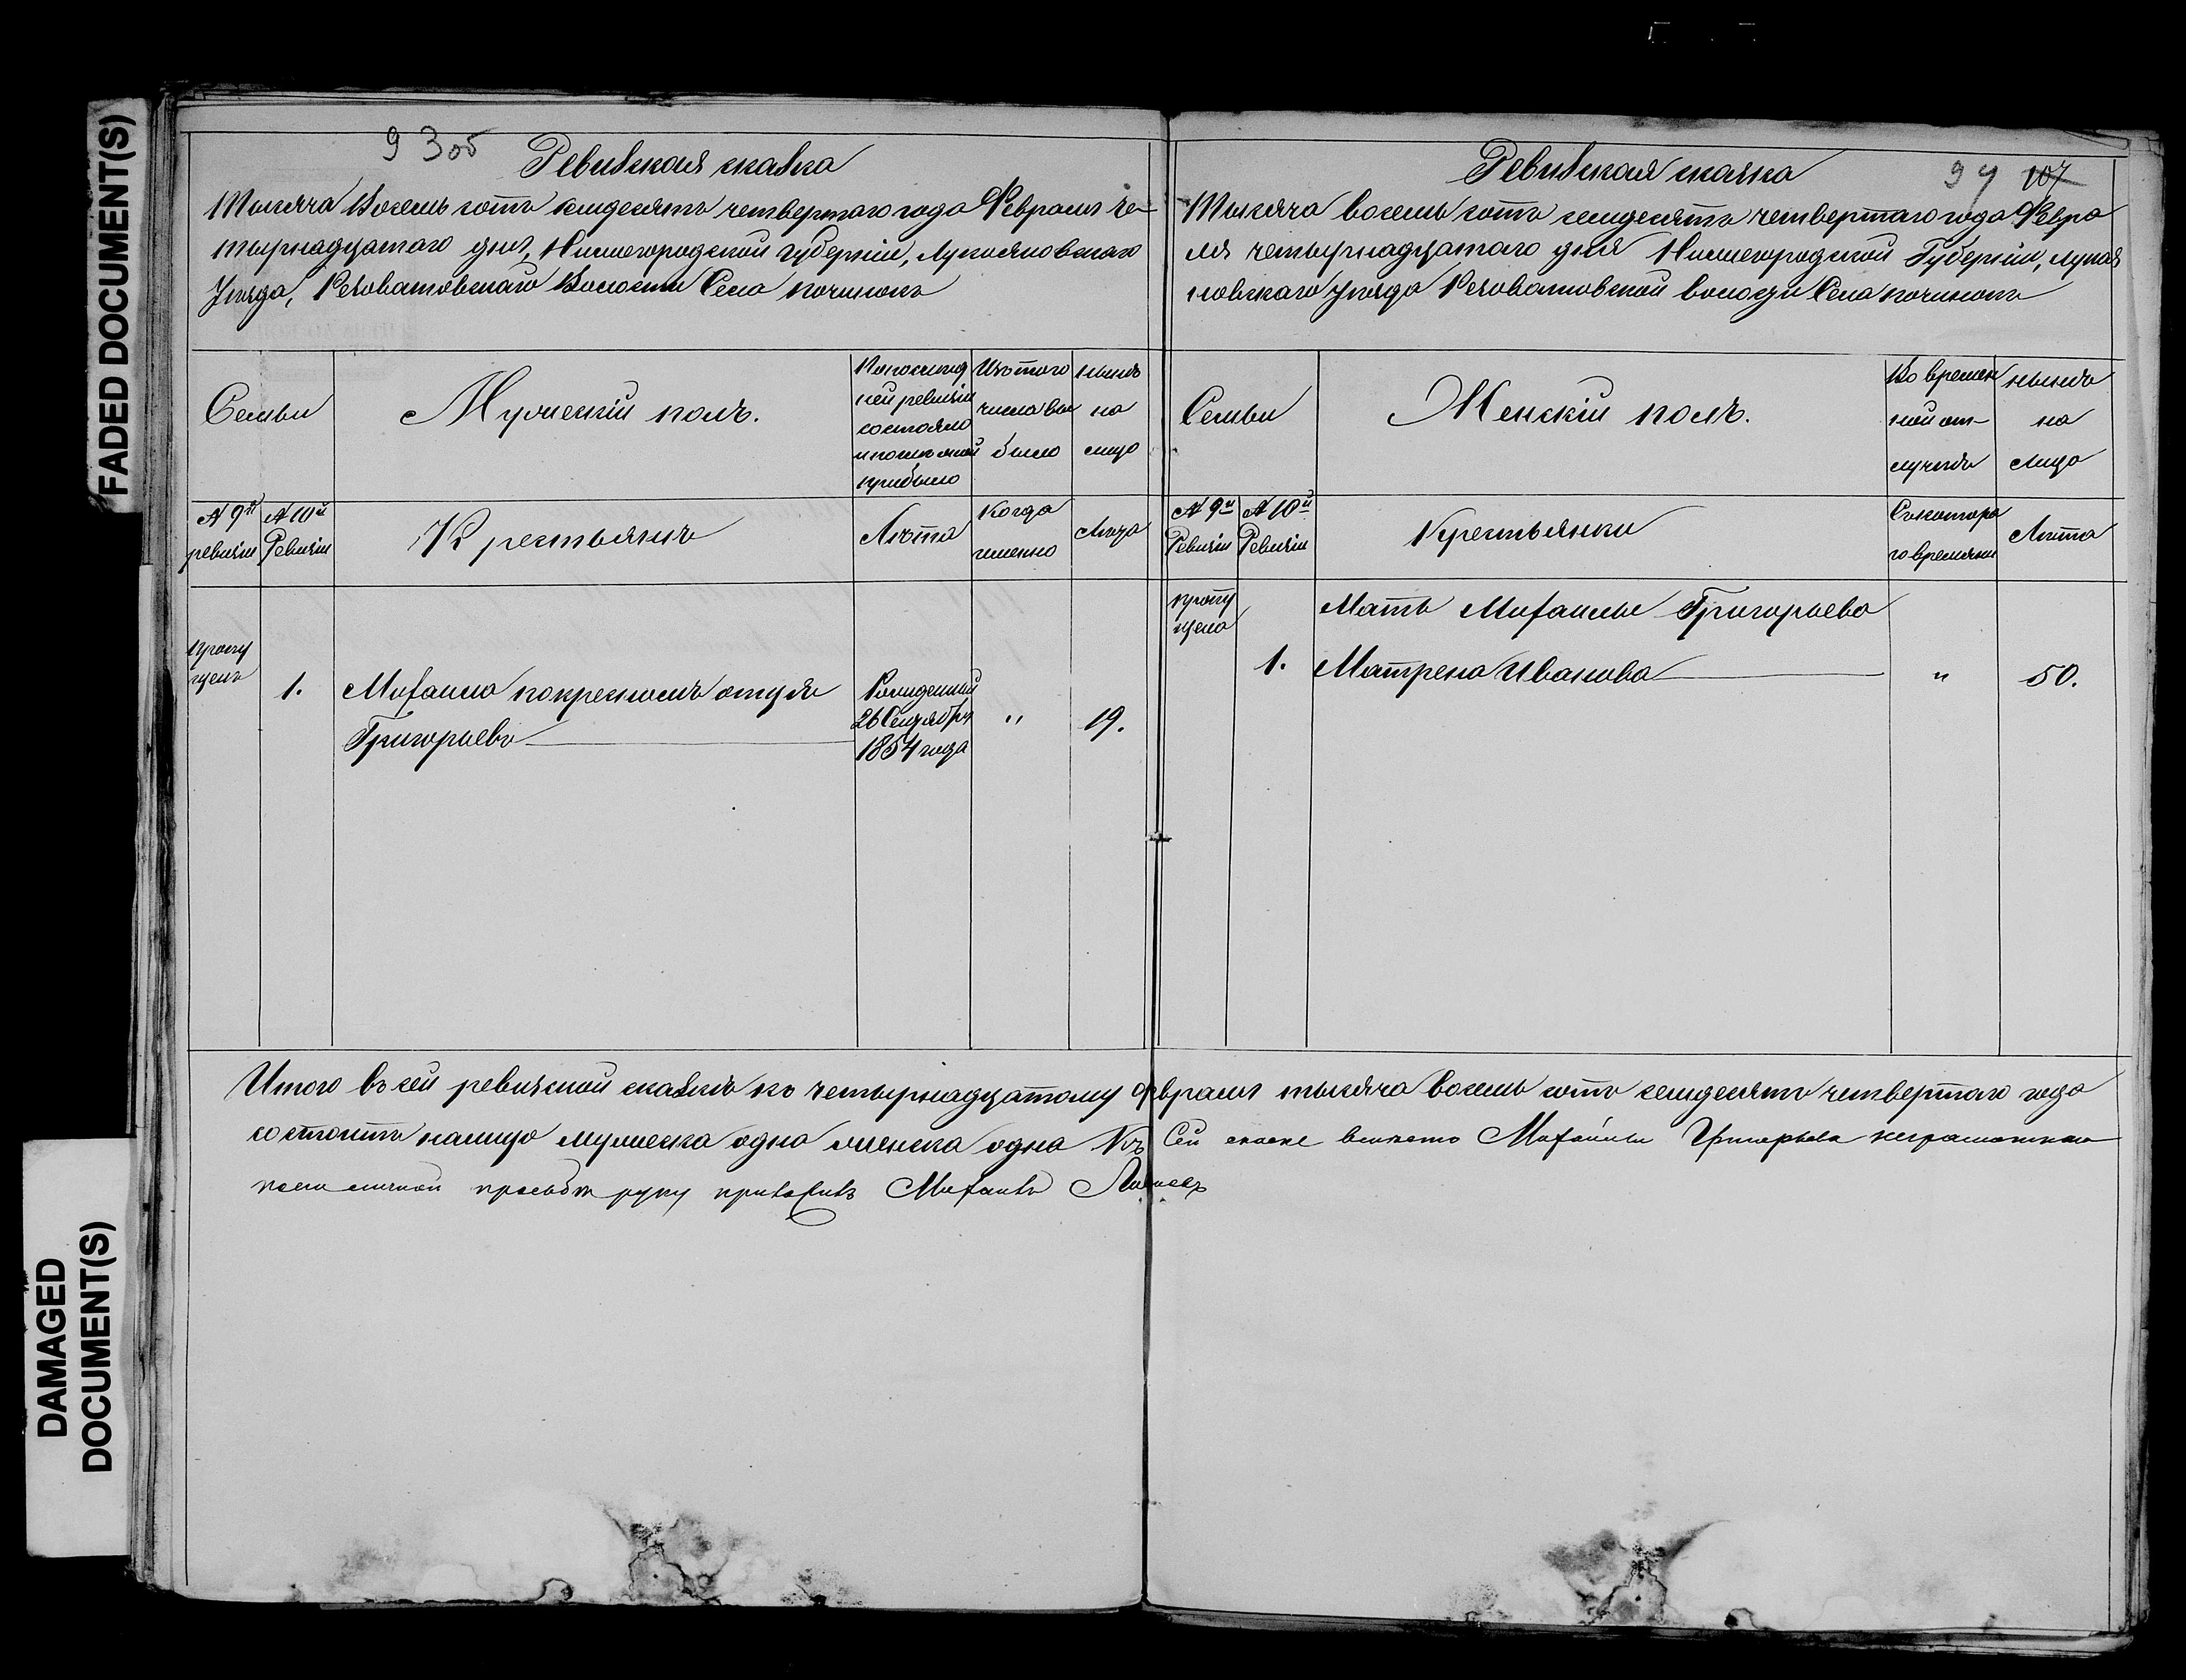 FADED DOCUMENT(S)
DAMAGED
DOCUMENT(S)
93об
Ревизская сказка
Тысяча Восемь сотъ семдесятъ четвертаго года Февраля че-
тырнадцатаго дня, Нижегородской губерніи, Лукояновскаго
Уѣзда, Резоватовскаго Волости Села починокъ
Семьи
Мужескій полъ.
По послѣд
ней ревизіи
состояло
и послѣ оной
прибыло
Изъ того
числа вы
было
нынѣ
на
лицо
№ 9й
ревизіи
№ 10й
Ревизіи
Крестьянъ
Лѣта
Когда
именно
Лѣта
пропу
щенъ
1.
Михаила по крестномъ отцѣ
Григорьевъ
Рожденный
26 Сентября
1854 года
"
19.
Ревизская сказка
94 107
Тысяча восемь сотъ семдесятъ четвертаго года Февра
ля четырнадцатаго дня Нижегородской Губерніи, Лукоя
новскаго уѣзда Резоватовской волости Села починокъ
Семьи
Женскій полъ.
Во времен
ной от-
лучкѣ
нынѣ
на
лицо
№ 9й
Ревизіи
№ 10й
Ревизіи
Крестьянки
Съ котора
го времяни
Лѣта
пропу
щена
1.
Мать Михаилы Григорьева
Матрена Иванова
"
50.
Итого въ сей ревизской сказкѣ къ четырнадцатому февраля тысяча восемь сотъ семдесятъ четвертаго года
состоитъ налицо мужеска одна женска одна Къ Сей сказке вместо Михайлы Григорьева неграмотнаго
по его личной просьбѣ руку приложилъ Михаилъ